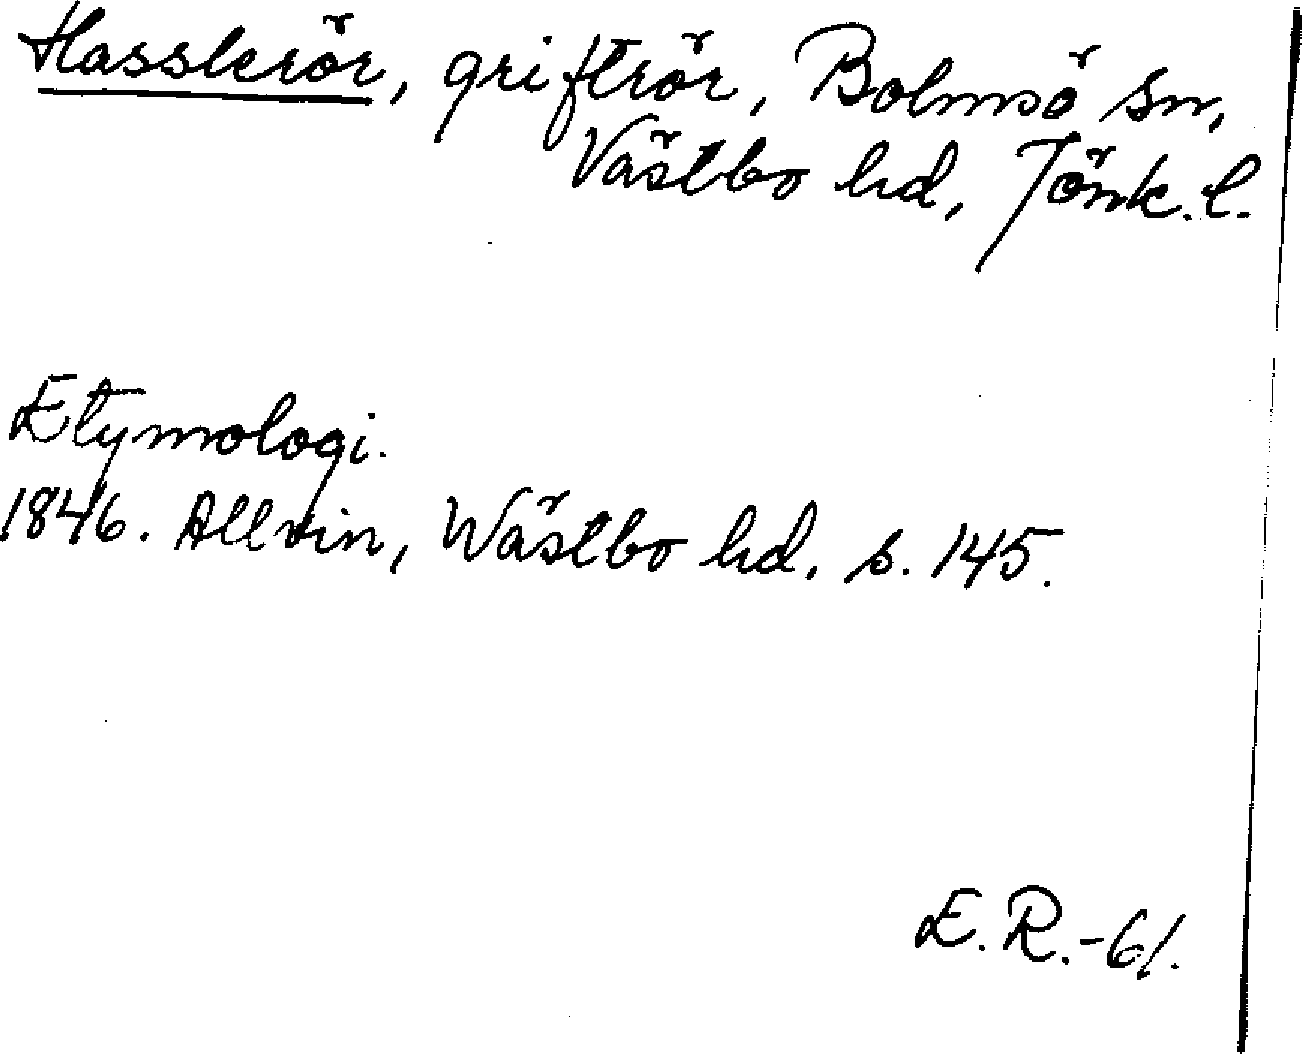 Hasslerör, griftrör, Bolmsö sn,
Västbo hd, Jönk. l.
Etymologi.
1846. Allvin, Wästbo hd. s. 145.
E. R. -61.